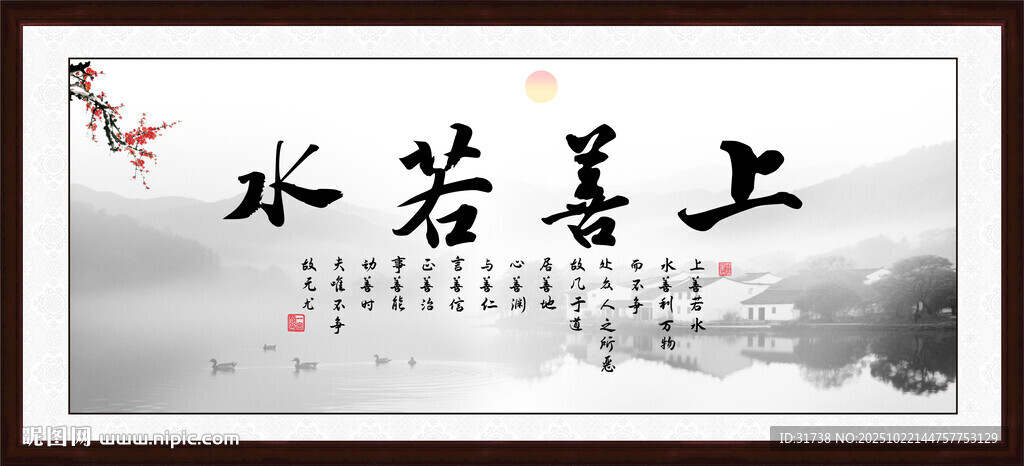 上善若水
上善若水
水善利万物
而不争
处众人之所恶
故几于道
居善地
心善渊
与善仁
言善信
正善治
事善能
动善时
夫唯不争
故无尤
昵图网 www.nipic.com
ID:31738 NO:20251022144757753129